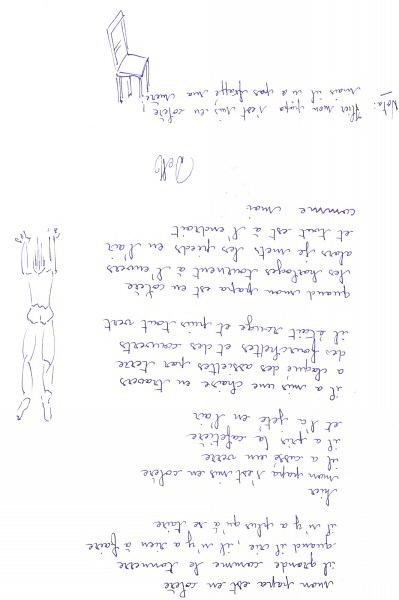 mon papa est en colère
il gronde comme le tonnerre
quand il crie, il n'y a rien à faire
il n'y a plus qu'à se taire
hier
mon papa s'est mis en colère
il a cassé un verre
il a pris la cafetière
et l'a jeté en l'air
il a mis une chaise en travers
a claqué des assiettes par terre
des fourchettes et des couverts
il était rouge et puis tout vert
quand mon papa est en colère
les horloges tournent à l'envers
alors je mets les pieds en l'air
et tout est à l'endroit
comme moi
Nota: Hier mon papa s'est mis en colère,
mais il n'a pas frappé ma mère